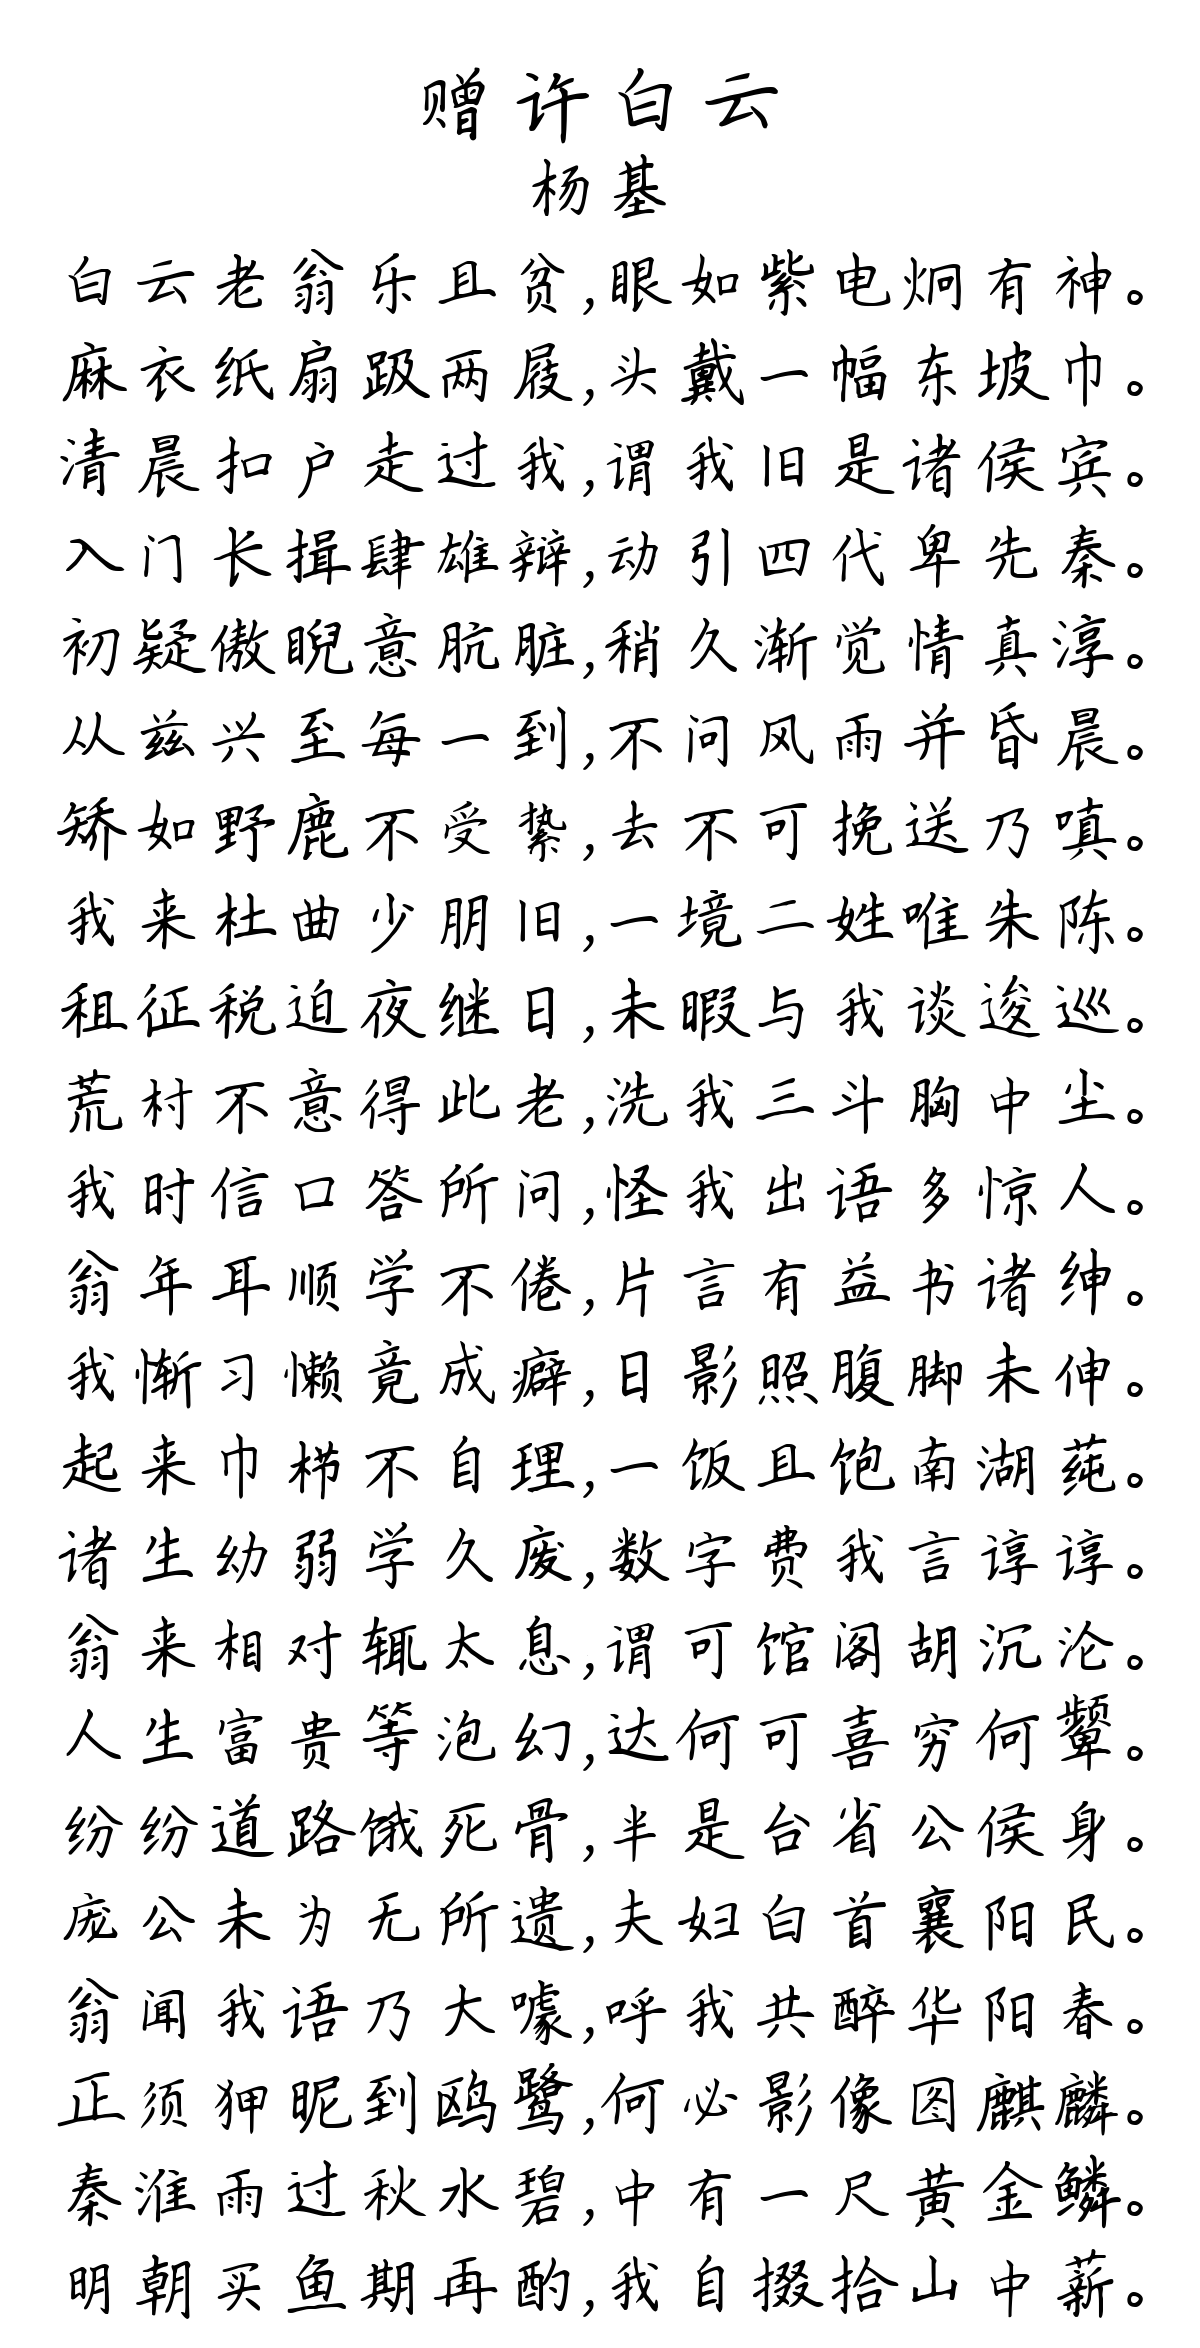 赠许白云
杨基
白云老翁乐且贫,眼如紫电炯有神。
麻衣纸扇趿两屐,头戴一幅东坡巾。
清晨扣户走过我,谓我旧是诸侯宾。
入门长揖肆雄辩,动引四代卑先秦。
初疑傲睨意肮脏,稍久渐觉情真淳。
从兹兴至每一到,不问风雨并昏晨。
矫如野鹿不受絷,去不可挽送乃嗔。
我来杜曲少朋旧,一境二姓唯朱陈。
租征税迫夜继日,未暇与我谈逡巡。
荒村不意得此老,洗我三斗胸中尘。
我时信口答所问,怪我出语多惊人。
翁年耳顺学不倦,片言有益书诸绅。
我惭习懒竟成癖,日影照腹脚未伸。
起来巾栉不自理,一饭且饱南湖莼。
诸生幼弱学久废,数字费我言谆谆。
翁来相对辄太息,谓可馆阁胡沉沦。
人生富贵等泡幻,达何可喜穷何颦。
纷纷道路饿死骨,半是台省公侯身。
庞公未为无所遗,夫妇白首襄阳民。
翁闻我语乃大噱,呼我共醉华阳春。
正须狎昵到鸥鹭,何必影像图麒麟。
秦淮雨过秋水碧,中有一尺黄金鳞。
明朝买鱼期再酌,我自掇拾山中薪。